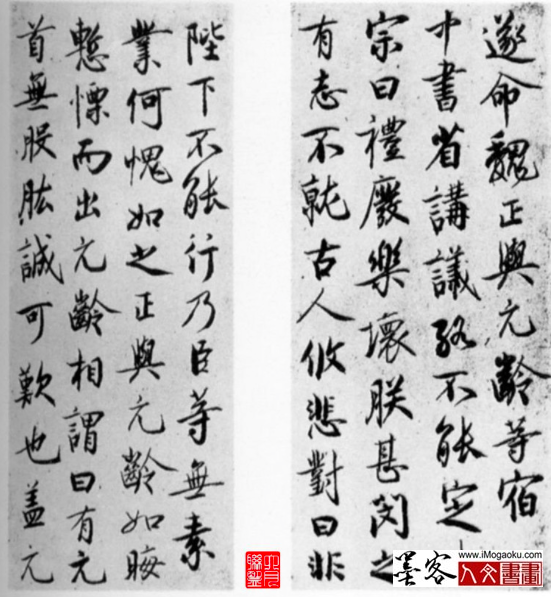 遂命魏正與元齡等宿
中書省講議終不能定
宗曰禮廢樂壞朕甚閔之
有志不就古人攸悲對曰非
陛下不能行乃臣等無素
業何愧如之正與元齡如晦
慙慄而出元齡相謂曰有元
首無股肱誠可歎也蓋元
www.iMogaoku.com
墨客
人文書畫